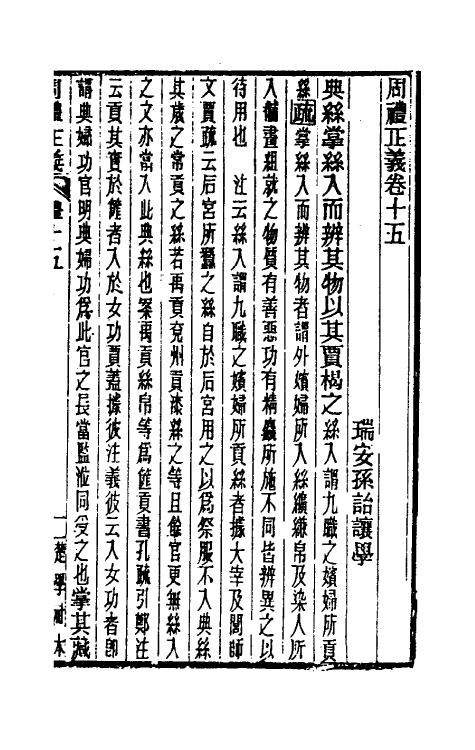 周禮正義卷十五
瑞安孫詒讓學
典絲掌絲入而辨其物以其賈楬之絲入謂九職之嬪婦所貢
絲疏掌絲入而辨其物者謂外嬪婦所入絲纊縑帛及染人所
入黼畫組就之物質有善惡功有精麤所施不同皆辨異之以
待用也 注云絲入謂九職之嬪婦所貢絲者據大宰及閭師
文賈疏云后宮所蠶之絲自於后宮用之以爲祭服不入典絲
其歲之常貢之絲若禹貢兗州貢漆絲之等且餘官更無絲入
之文亦當入此典絲也案禹貢絲帛等爲篚貢書孔疏引鄭注
云貢其實於篚者入於女功賈蓋據彼注義彼云入女功者卽
謂典婦功官明典婦功爲此官之長當監涖同受之也掌其藏
周禮正義 卷十五
一 楚學社本